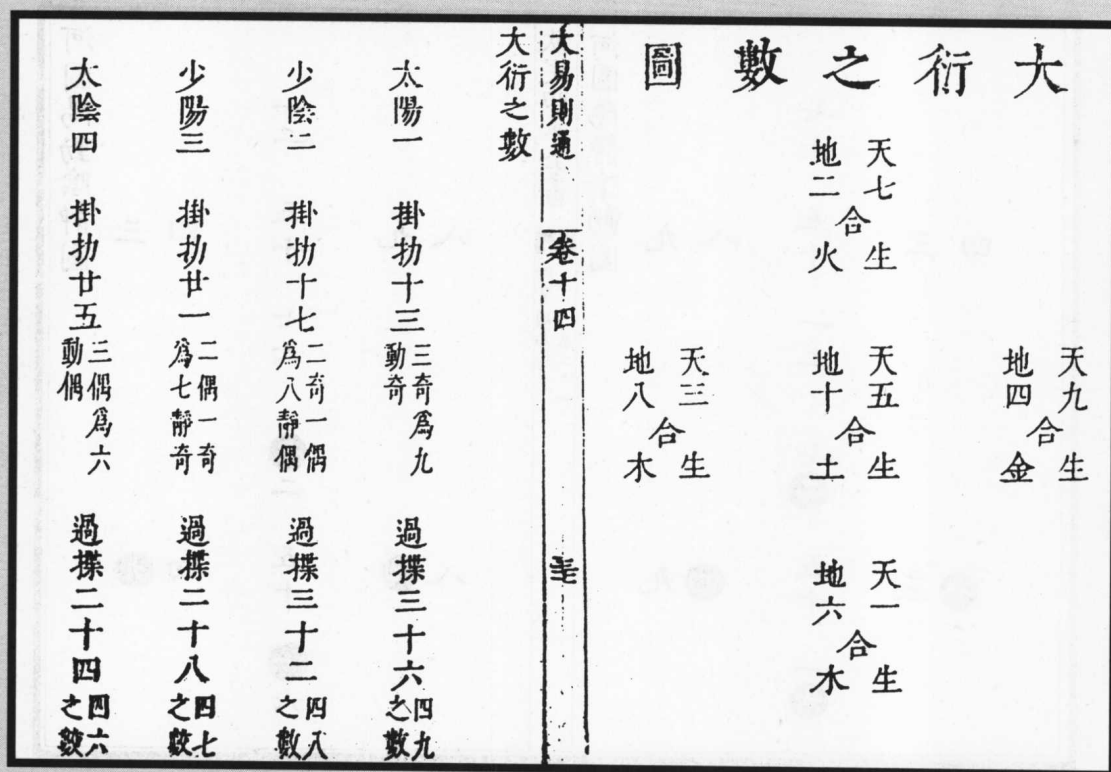 大衍之數圖
天九地四合生金
天七地二合生火
天五地十合生土
天一地六合生水
天三地八合生木
大易則通 卷十四
大衍之數
太陽一 掛扐十三 三奇爲九動奇 過揲三十六 四九之數
少陰二 掛扐十七 二奇一偶爲八靜偶 過揲三十二 四八之數
少陽三 掛扐廿一 二偶一奇爲七靜奇 過揲二十八 四七之數
太陰四 掛扐廿五 三偶爲六動偶 過揲二十四 四六之數